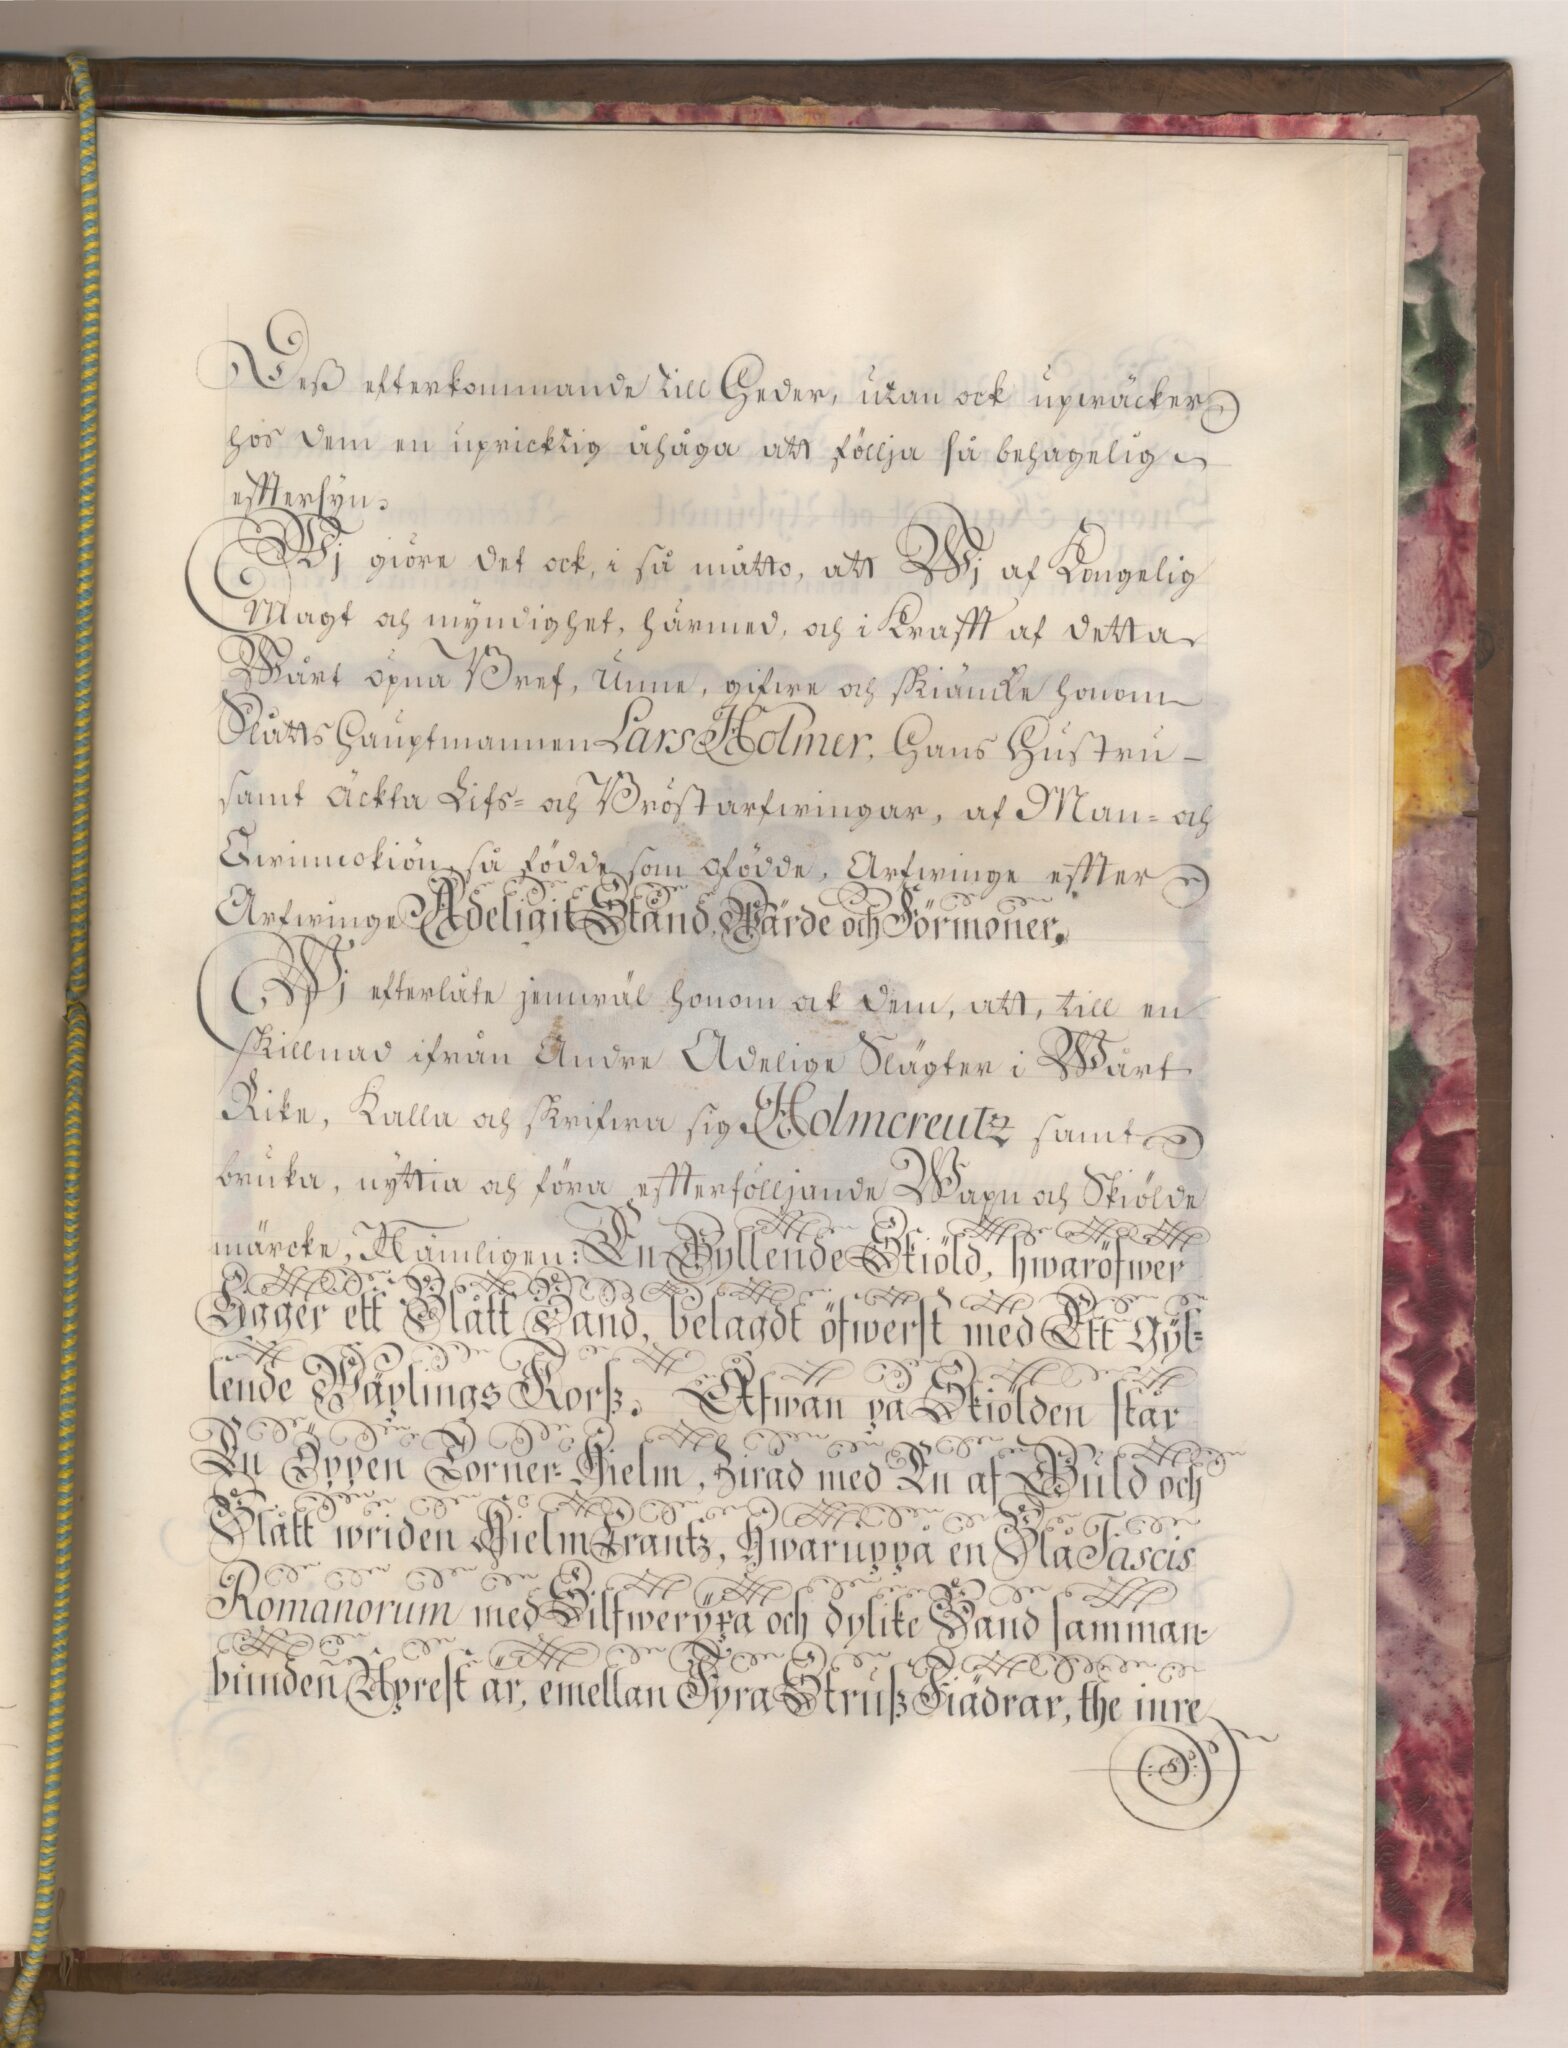 Deß efterkommande till Heder, utan ock upwäcker
hos dem en upricktig åhåga att föllja så behagelig
efftersyn.
Wj giöre det ock, i så måtto, att Wj af Kongelig
Magt och myndighet, härmed, och i Krafft af detta
Wårt öpna Bref, Unne, gifwe och skiäncke honom
Slåtts Hauptmannen Lars Holmer, Hans Hustru
samt Äckta Lifs- och Bröstarfwingar, af Man- och
Qwinnokiön, så födde som ofödde, Arfwinge effter
Arfwinge Adeligit Stånd, Wärde och Förmoner.
Wj efterlåte jemwäl honom ock dem, att, till en
skillnad ifrån Andre Adelige Slägter i Wårt
Rike, Kalla och skrifwa sig Holmcreutz samt
bruka, nyttia och föra effterfölljande Wapn och Skiölde
märcke, Nämligen: En Gyllende Skiöld, hwaröfwer
Ligger ett Blått Band, belagdt öfwerst med Ett Gyl-
lende Wäplings Korß. Åfwan på Skiölden står
En Öppen Torner-Hielm, Zirad med En af Guld och
Blått wriden Hielm Crantz, Hwaruppå en Blå Fascis
Romanorum med Silfweryxa och dylike Band samman-
bunden Uprest är, emellan Fyra Struß Fiädrar, the inre